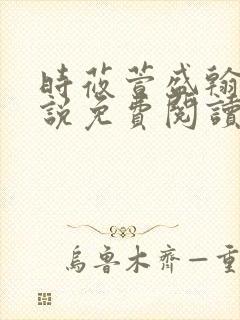 時莜萱盛翰
說免費閱讀
烏魯木齊—重